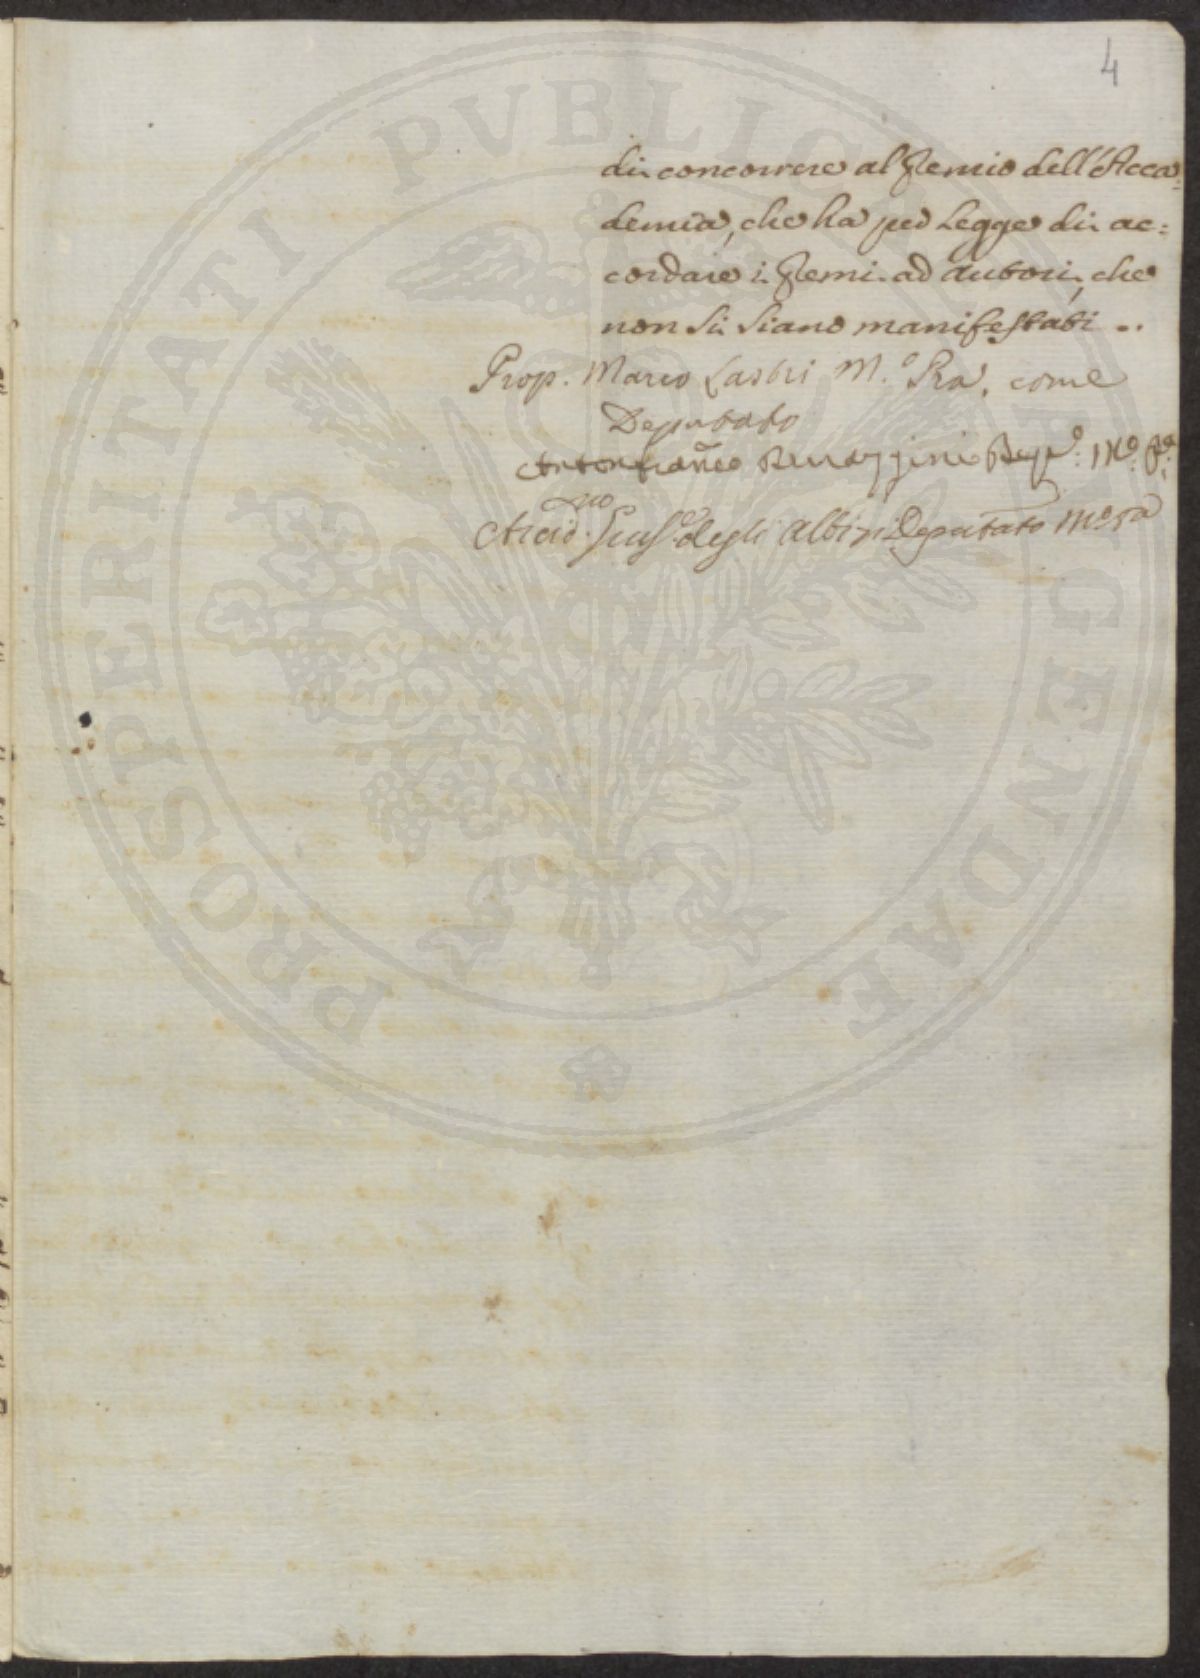 4
di concorrere al Premio dell'Acca=
demia, che ha per Legge di ac=
cordare i Premi ad autori, che
non si siano manifestati ..
Prop. Marco Lastri M.o Pra, come
Deputato
Dep.o M.o P.a
Arcid.no degli Albizi Deputato M.o pa
PROSPERITATI PVBLICAE AVGENDAE